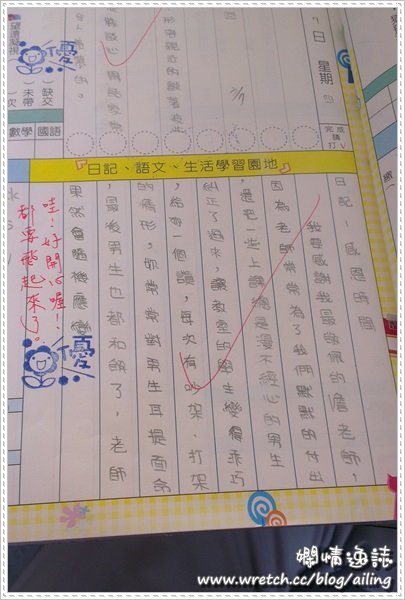 日 星期四
完成
請
打
缺交
未帶
次
數學 國語
優
『日記、語文、生活學習園地』
日記 感恩時間
我要感謝我最敬佩的詹老師，
因為老師常常為了我們默默的付出
，還把一些上課總是漫不經心的男生
糾正了過來，讓教室的男生變得乖巧
，給你一個讚，每次有吵架、打架
的情形，妳常常對男生耳提面命
，最後男生也都和了，老師
果然會隨機應變
哇！好開心喔！
都要飄起來了。
優
嫻情逸誌
www.wretch.cc/blog/ailing